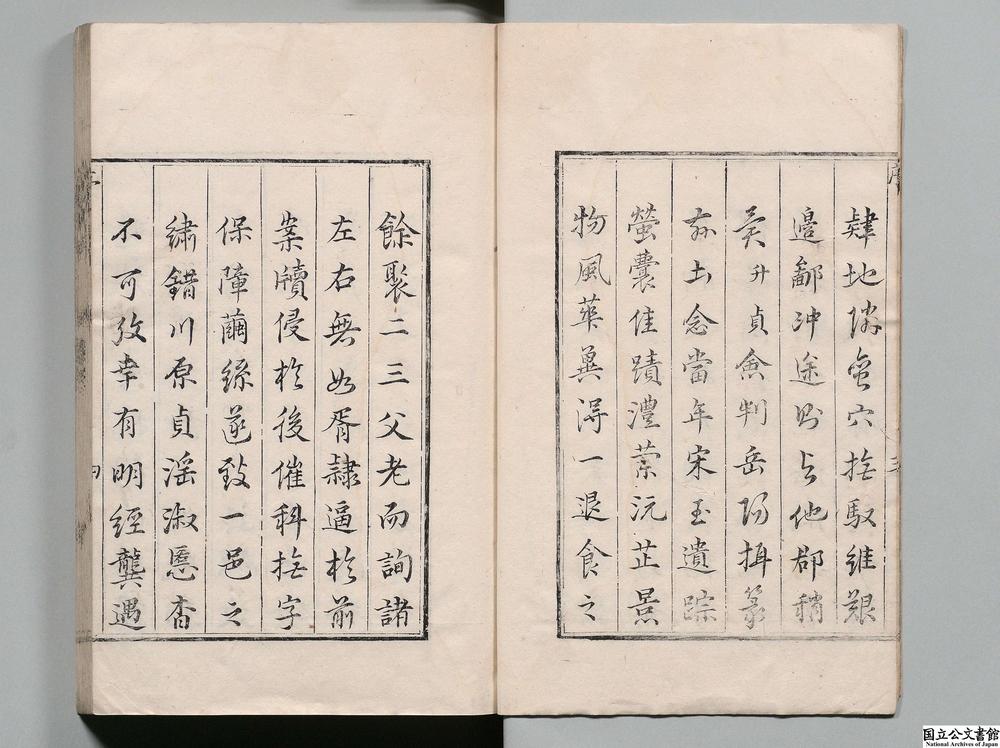 肄地隣蛮穴撫馭維艱
邉鄙冲途則與他郡稍
異升貞禽判岳陽揖篆
茲土念當年宋玉遺踪
螢囊佳蹟澧蘭沅芷景
物風華冀得一退食之
餘聚二三父老而詢諸
左右無如胥隸逼於前
案牘侵於後催科撫字
保障繭絲遂致一邑之
繡錯川原貞滛淑慝杳
不可攷幸有明經龔遇
序
三
四
国立公文書館
National Archives of Japan